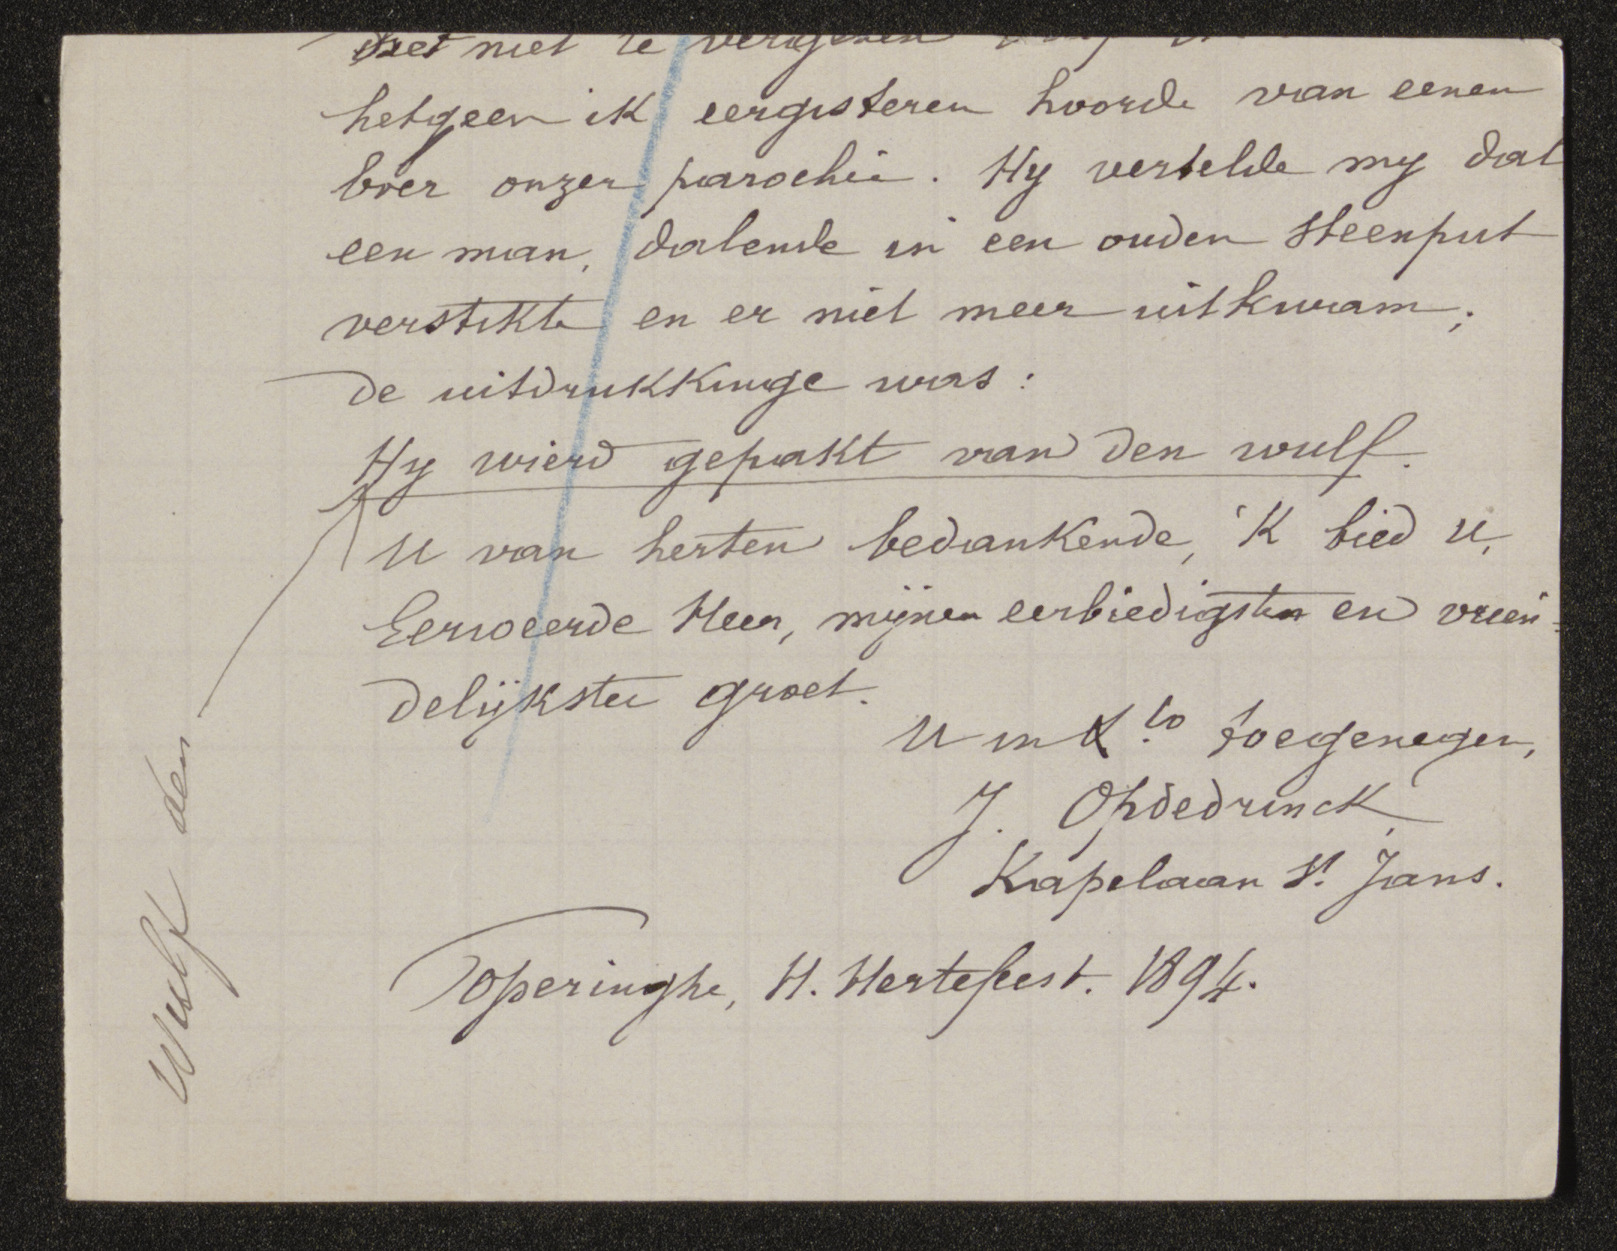 niet te vergeten
hetgeen ik eergisteren hoorde van eenen
boer onzer parochie. Hy vertelde my dat
een man, dalende in een ouden steenput
verstikte en er niet meer uitkwam;
de uitdrukkinge was:
Hy wierd gepakt van den wulf.
U van herten bedankende, 'k bied U,
Eerweerde Heer, mijnen eerbiedigsten en vrien-
delijksten groet.
U in X.to toegenegen,
J. Opdedrinck,
Kapelaan St. Jans.
Poperinghe, H. Hertefeest. 1894.
Wulf den